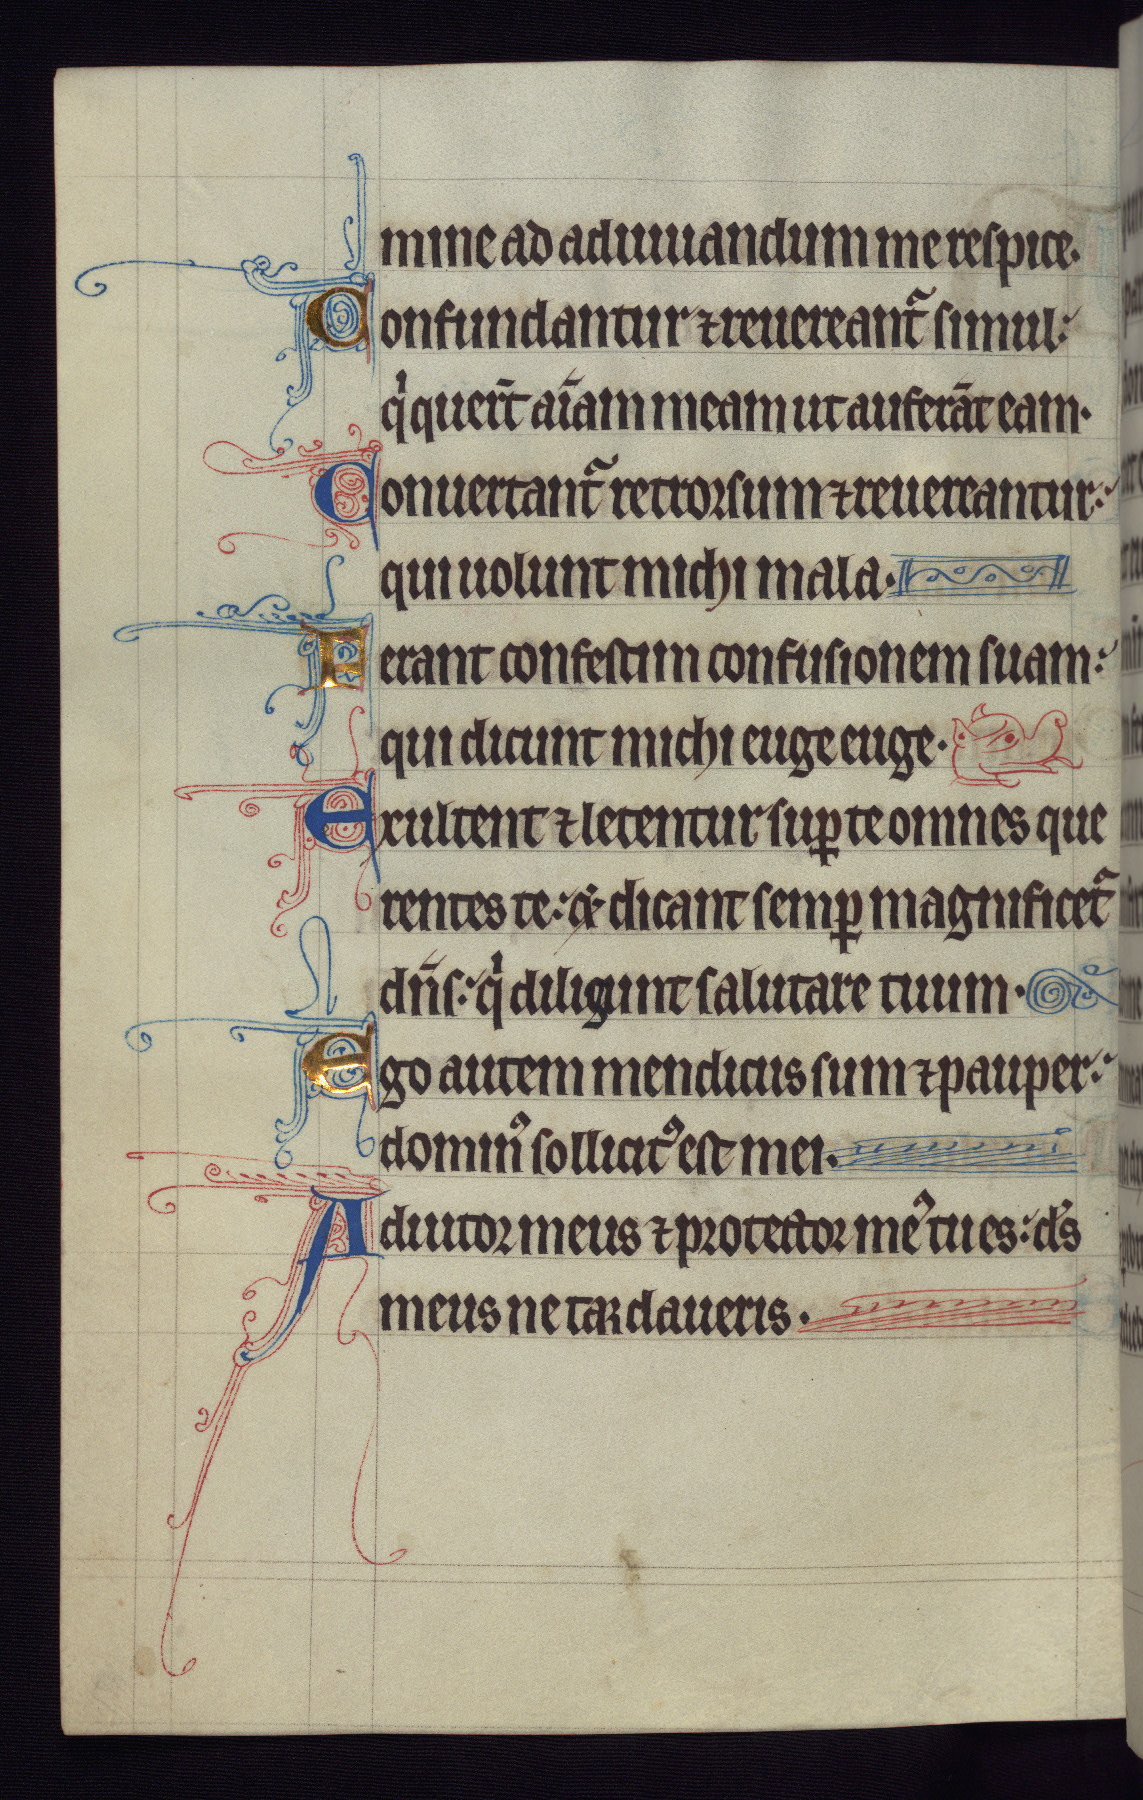 mine ad adiuuandum me respice.
Confundantur ⁊ reuereant᷑ simul:
q̇ quer̄t aīam meam ut auferāt eam.
Conuertant᷑ retrorsum ⁊ reuereantur:
qui uolunt michi mala.
Ferant confestim confusionem suam:
qui dicunt michi euge euge.
Exultent ⁊ letentur sup̲ te omnes que
rentes te: ⁊ dicant semp̲ magnificet᷑
dn̄s: q̇ diligunt salutare tuum.
Ego autem mendicus sum ⁊ pauper:
dominꝰ sollicitꝰ est mei.
Adiutor meus ⁊ protector meꝰ tu es: ds̄
meus ne tardaueris.